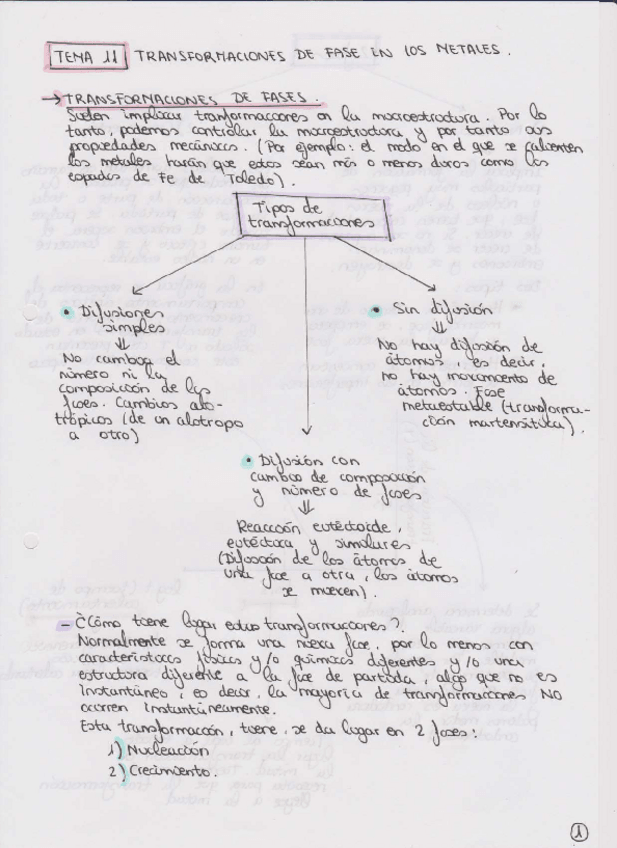 TEMA 11 TRANSFORMACIONES DE FASE EN LOS METALES.
→ TRANSFORMACIONES DE FASES.
Suelen implicar transformaciones en la microestructura. Por lo
tanto, podemos controlar la microestructura y por tanto sus
propiedades mecánicas. (Por ejemplo: el modo en el que se calienten
los metales harán que estos sean más o menos duros como las
espadas de Fe de Toledo).
Tipos de
transformaciones
• Difusiones
simples
⇓
No cambia el
número ni la
composición de las
fases. Cambios alo-
trópicos (de un alotropo
a otro)
• Sin difusión
⇓
No hay difusión de
átomos, es decir,
no hay movimiento de
átomos. Fase
metaestable (transforma-
ción martensítica).
• Difusión con
cambio de composición
y número de fases
⇓
Reacción eutéctoide,
eutéctica y similares
(Difusión de los átomos de
una fase a otra, los átomos
se mueven).
- ¿Cómo tiene lugar estas transformaciones?.
Normalmente se forma una nueva fase, por lo menos con
características físicas y/o químicas diferentes y/o una
estructura diferente a la fase de partida, algo que no es
instantáneo, es decir, la mayoría de transformaciones NO
ocurren instantáneamente.
Esta transformación, tiene, se da lugar en 2 fases:
1) Nucleación
2) Crecimiento.
1